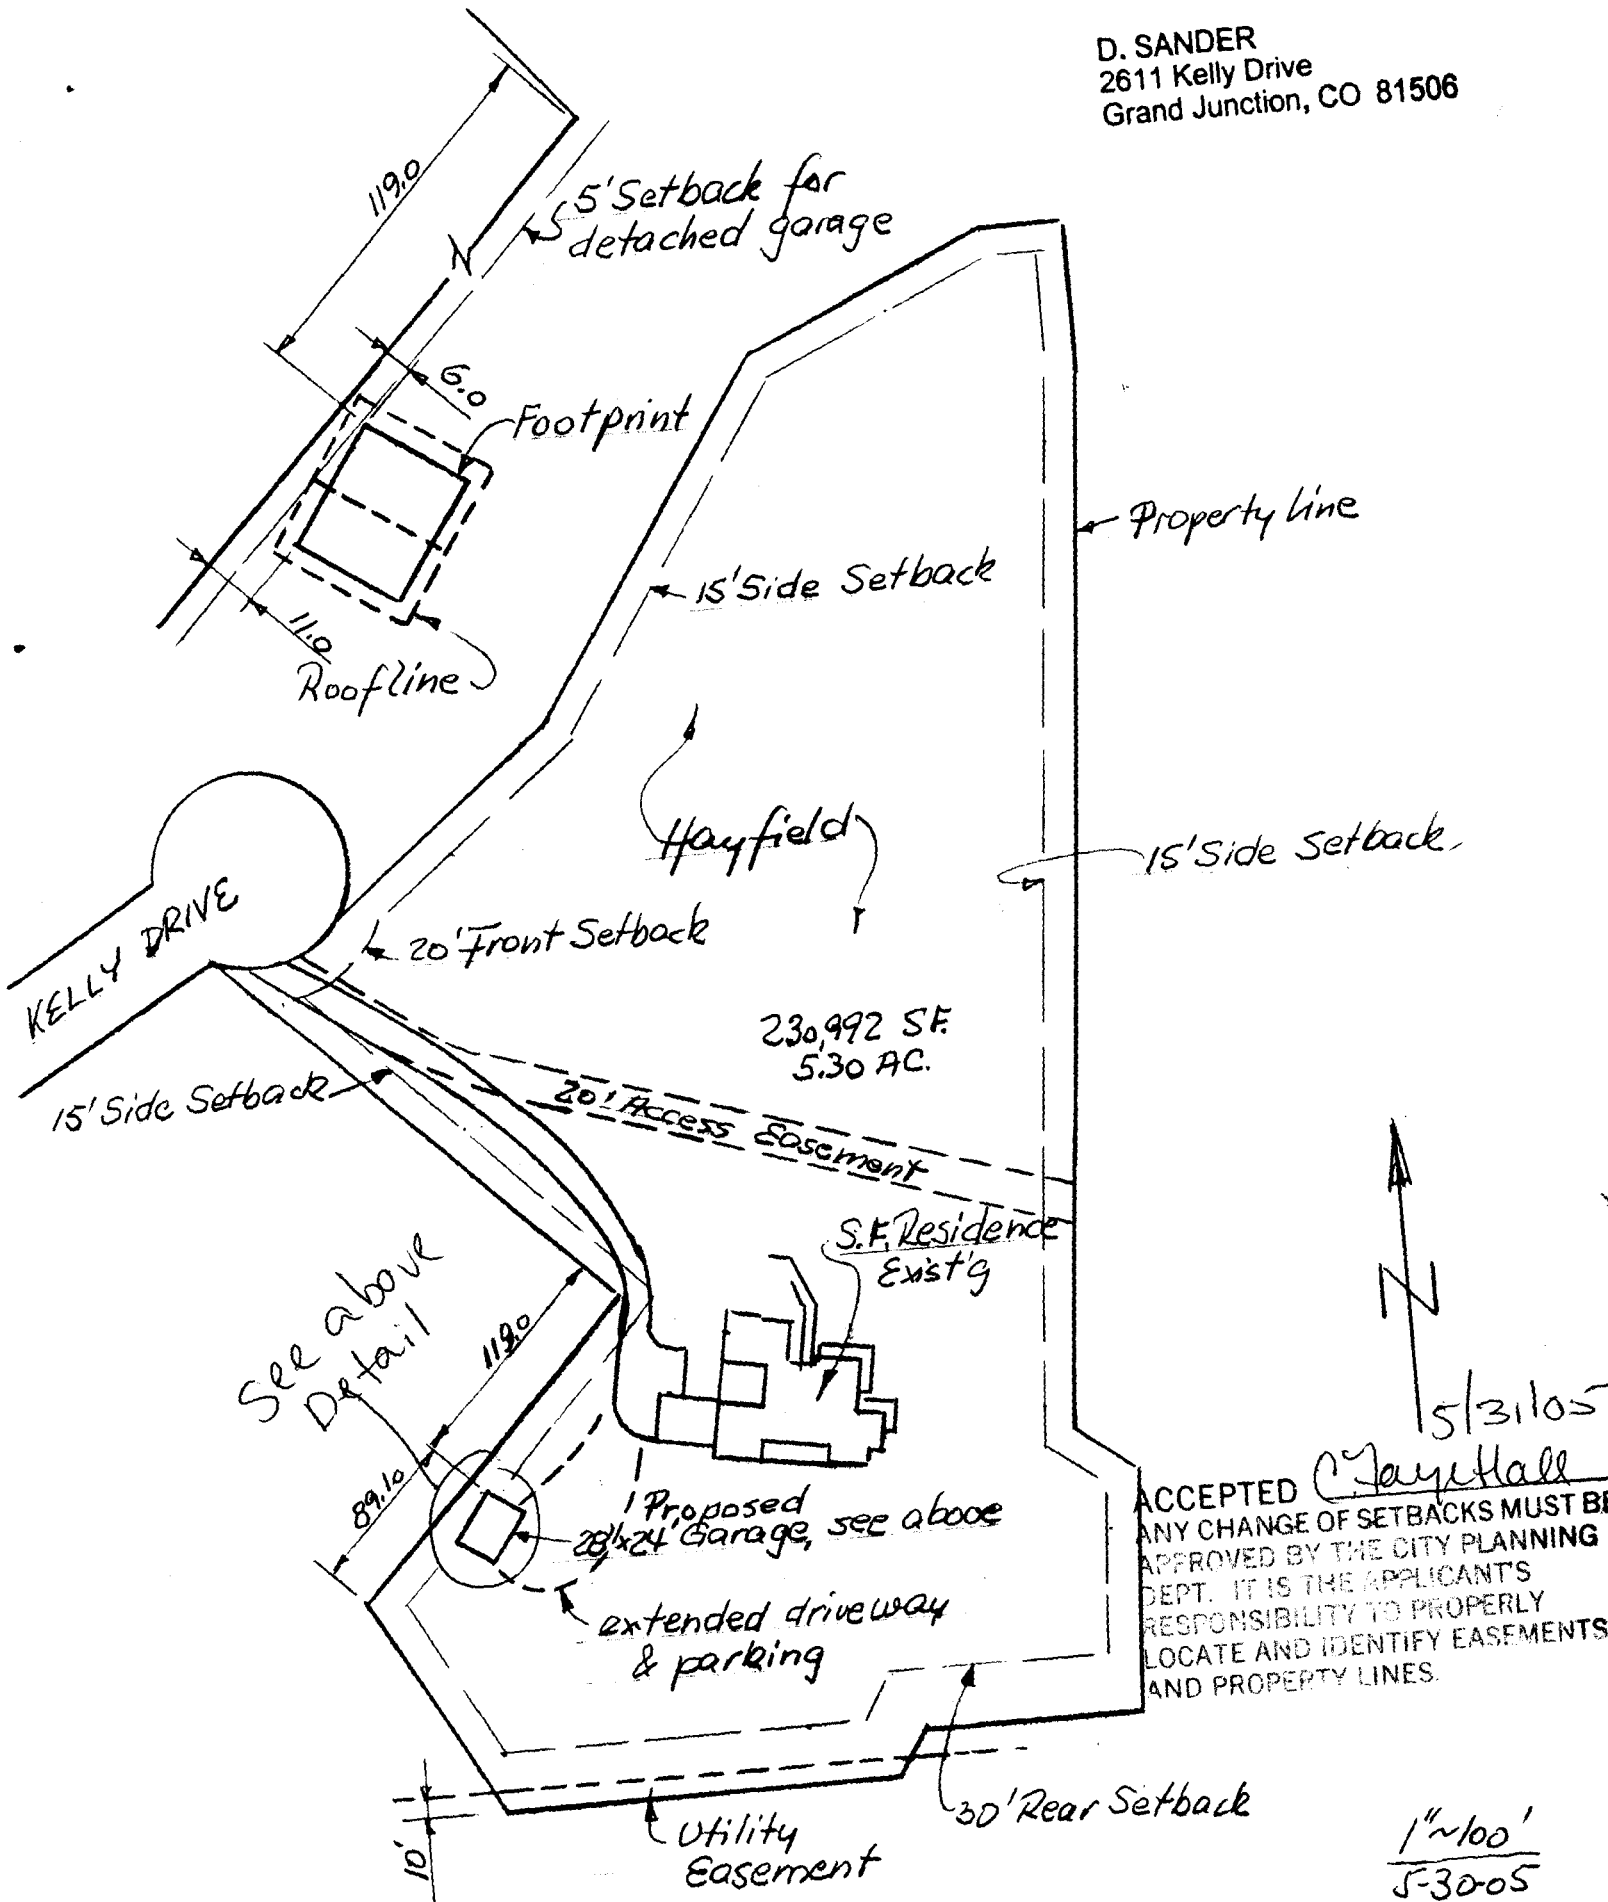 D. SANDER
2611 Kelly Drive
Grand Junction, CO 81506
119.0
5' Setback for
detached garage
N
6.0
Footprint
11.0
Roofline
Property line
15' Side Setback
Hayfield
15' Side Setback
KELLY DRIVE
20' Front Setback
230,992 S.F.
5.30 AC.
15' Side Setback
20' Access Easement
S.F. Residence
Exist'g
See above
Detail
119.0
89.10
Proposed
28'x24' Garage, see above
extended driveway
& parking
N
5/31/05
ACCEPTED C. Faye Hall
ANY CHANGE OF SETBACKS MUST BE
APPROVED BY THE CITY PLANNING
DEPT. IT IS THE APPLICANT'S
RESPONSIBILITY TO PROPERLY
LOCATE AND IDENTIFY EASEMENTS
AND PROPERTY LINES.
30' Rear Setback
Utility
Easement
10'
1"~100'
5-30-05